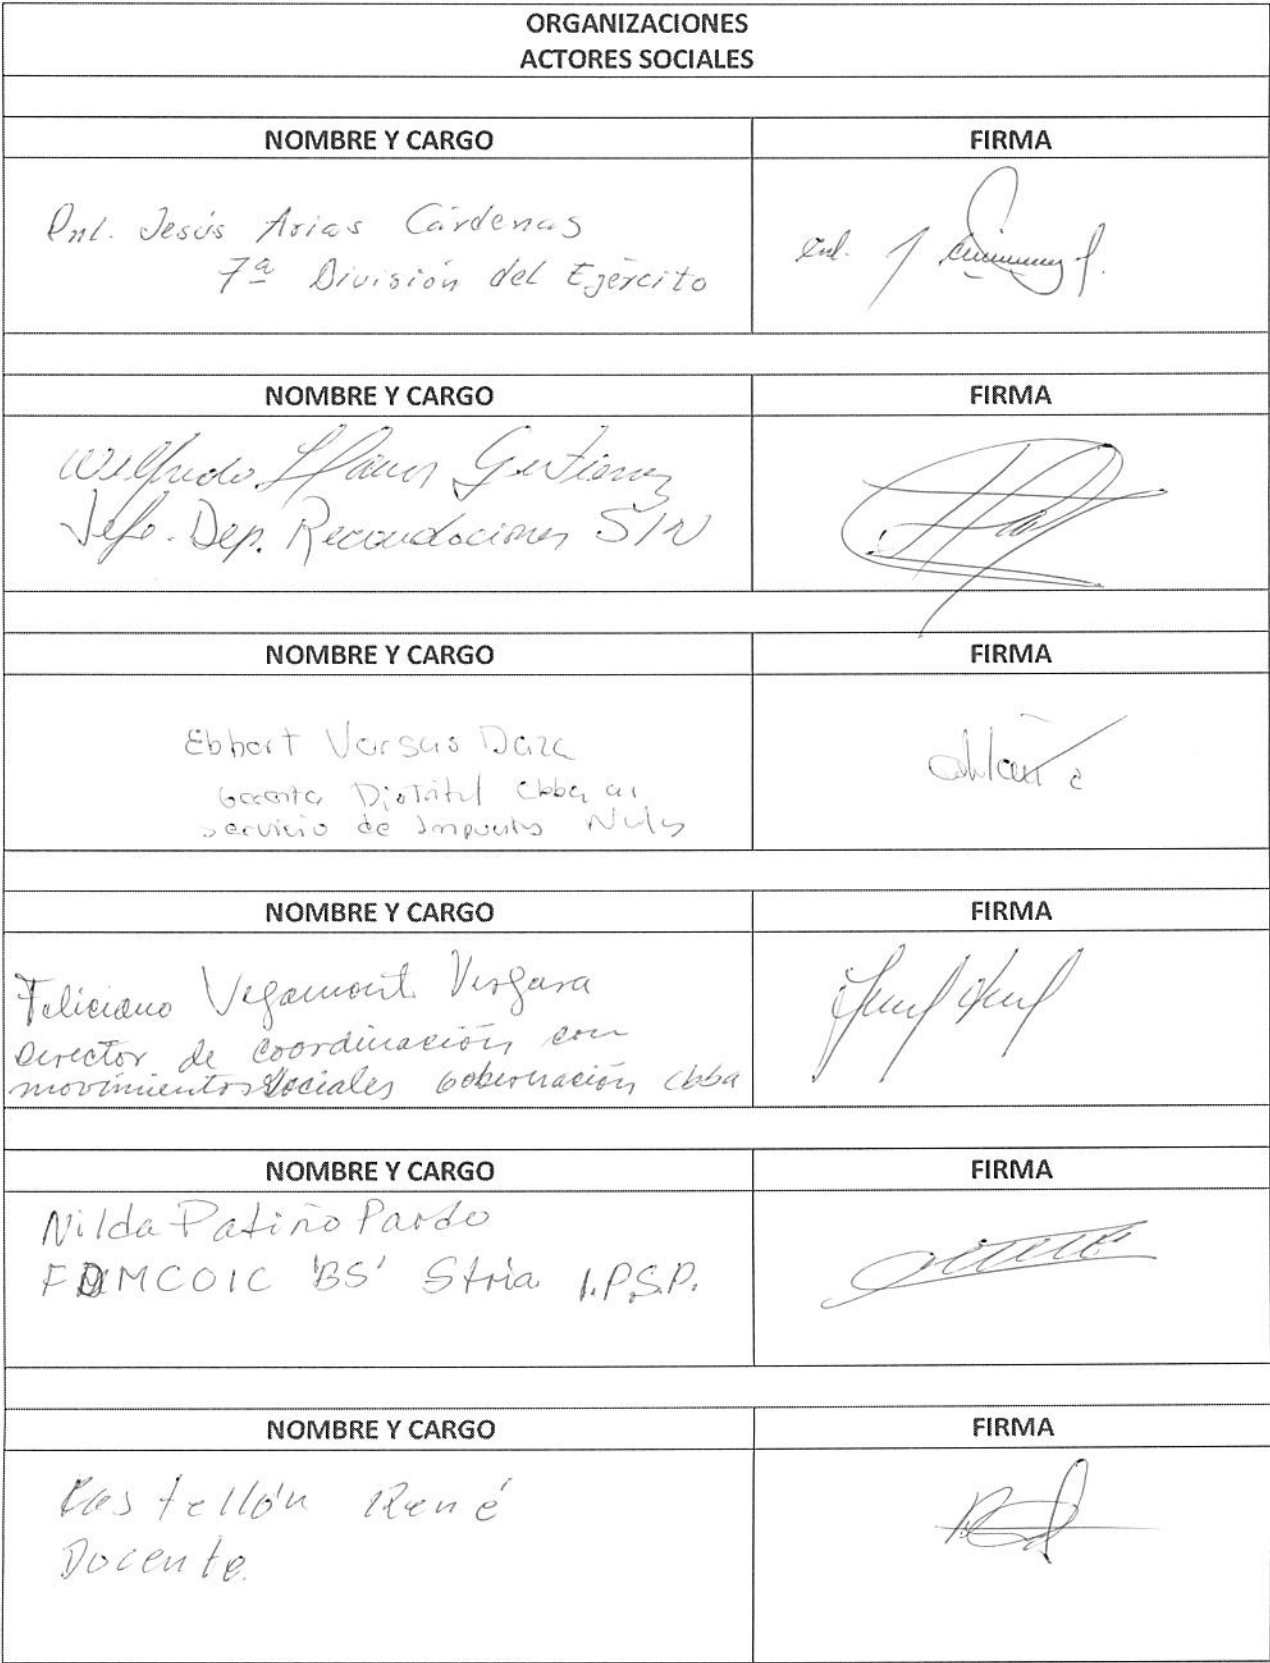 ORGANIZACIONES
ACTORES SOCIALES
NOMBRE Y CARGO FIRMA
Cnl. Jesús Arias Cárdenas
7ª División del Ejército
Cnl.
NOMBRE Y CARGO FIRMA
Wilfredo Gutierrez
Jefe Dep. Recaudaciones SIN
NOMBRE Y CARGO FIRMA
Ebhert Vargas Daza
Gerente Distrital Cbba ai
Servicio de Impuestos Nales
NOMBRE Y CARGO FIRMA
Feliciano Vegamont Vergara
Director de coordinación con
movimientos sociales Gobernación Cbba
NOMBRE Y CARGO FIRMA
Nilda Patiño Pardo
FDMCOIC 'BS' Stria I.P.S.P.
NOMBRE Y CARGO FIRMA
Castellón René
Docente